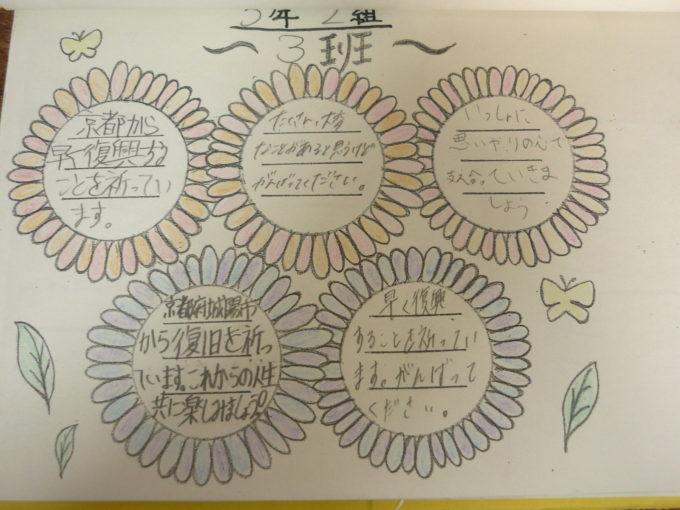 3年2組
～3班～
京都から
早く復興する
ことを祈ってい
ます。
たくさん大変
なことがあると思うけど
がんばってください。
いっしょに
思いやりの心で
支え合っていきま
しょう
京都府城陽市
から復旧を祈っ
ています。これからの人生
共に楽しみましょう!
早く復興
することを祈ってい
ます。がんばって
ください。